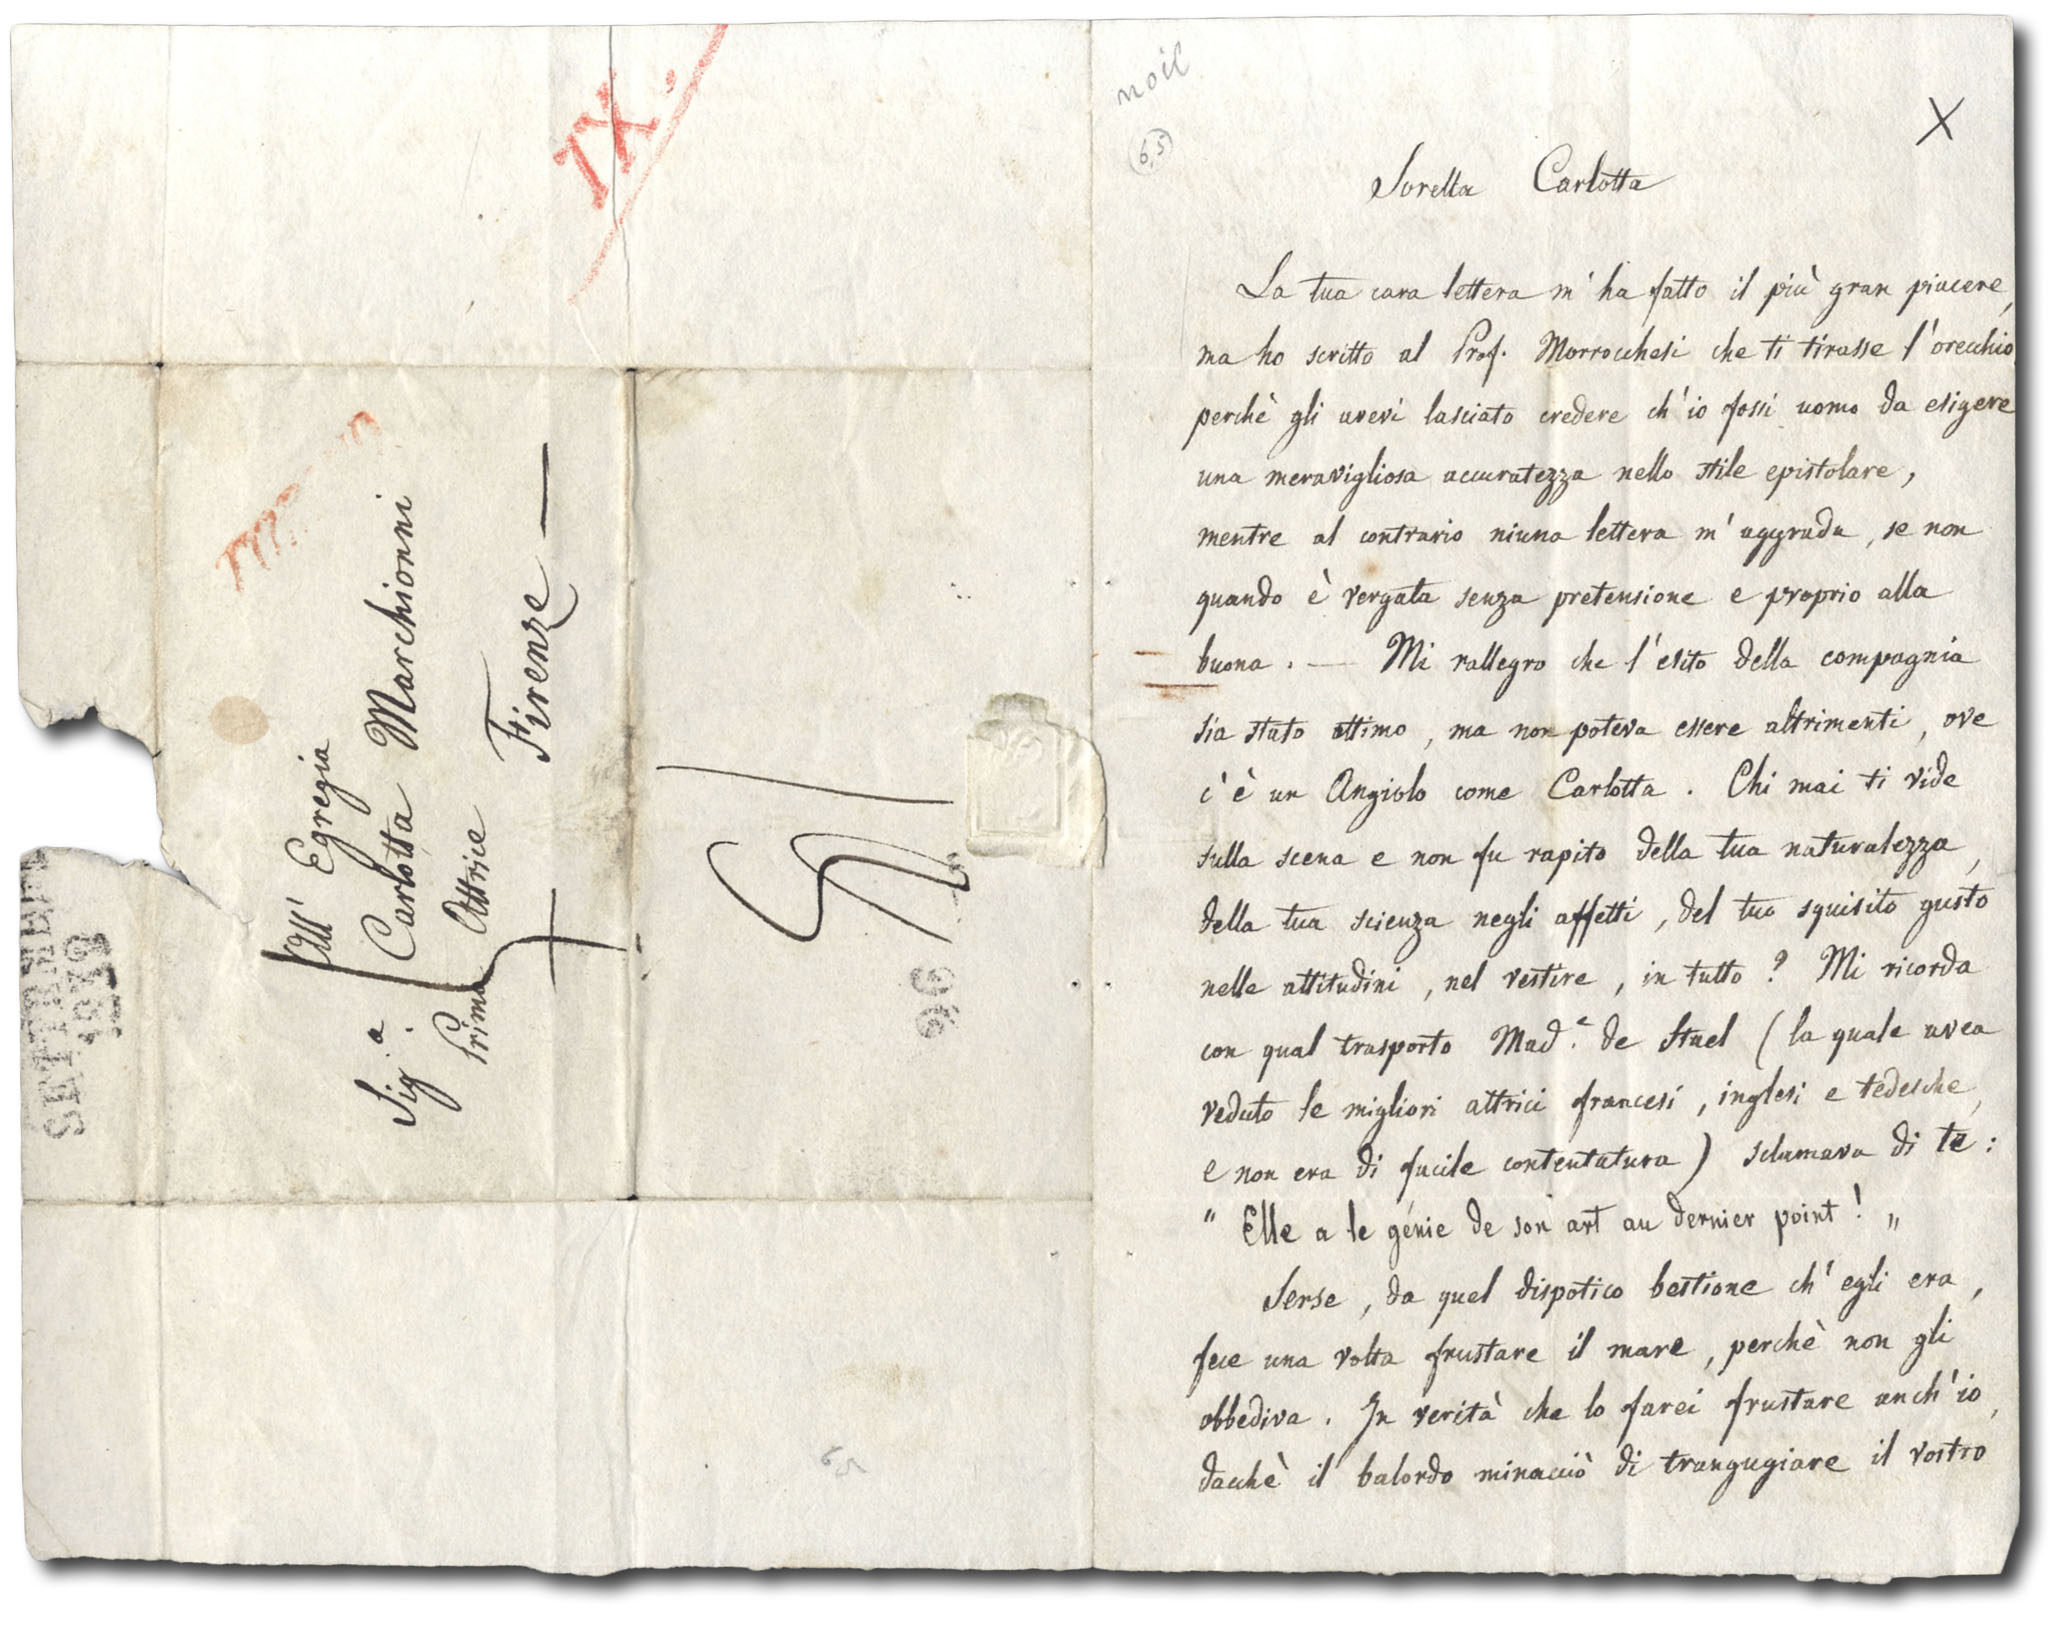 All' Egregia
Sig.a Carlotta Marchionni
Prima Attrice
Firenze —
IX,
SETTEMBRE
96
noil
6,5
X
Sorella Carlotta
La tua cara lettera m'ha fatto il più gran piacere,
ma ho scritto al Prof. Morrocchesi che ti tirasse l'orecchio
perchè gli avevi lasciato credere ch'io fossi uomo da esigere
una meravigliosa accuratezza nello stile epistolare,
mentre al contrario niuna lettera m'aggrada, se non
quando è vergata senza pretensione e proprio alla
buona. — Mi rallegro che l'esito della compagnia
sia stato ottimo, ma non poteva essere altrimenti, ove
c'è un Angiolo come Carlotta. Chi mai ti vide
sulla scena e non fu rapito della tua naturalezza,
della tua scienza negli affetti, del tuo squisito gusto
nelle attitudini, nel vestire, in tutto? Mi ricorda
con qual trasporto Mad.e de Stael (la quale avea
veduto le migliori attrici francesi, inglesi e tedesche,
e non era di facile contentatura) sclamava di te:
" Elle a le génie de son art au dernier point! „
Serse, da quel dispotico bestione ch'egli era,
fece una volta frustare il mare, perchè non gli
obbediva. In verità che lo farei frustare anch'io,
dacchè il balordo minacciò di trangugiare il vostro